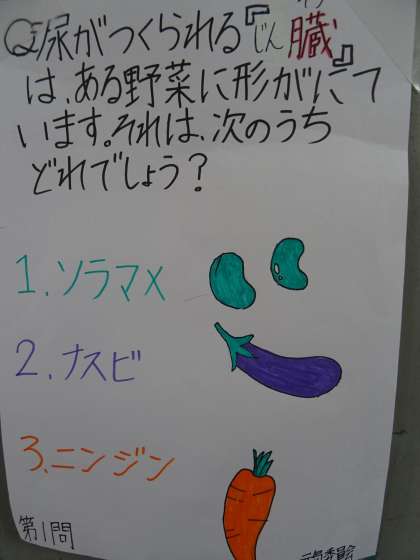 Q.尿がつくられる『じん臓』
ぞう
は、ある野菜に形がにて
います。それは、次のうち
どれでしょう?
1.ソラマメ
2.ナスビ
3.ニンジン
第1問